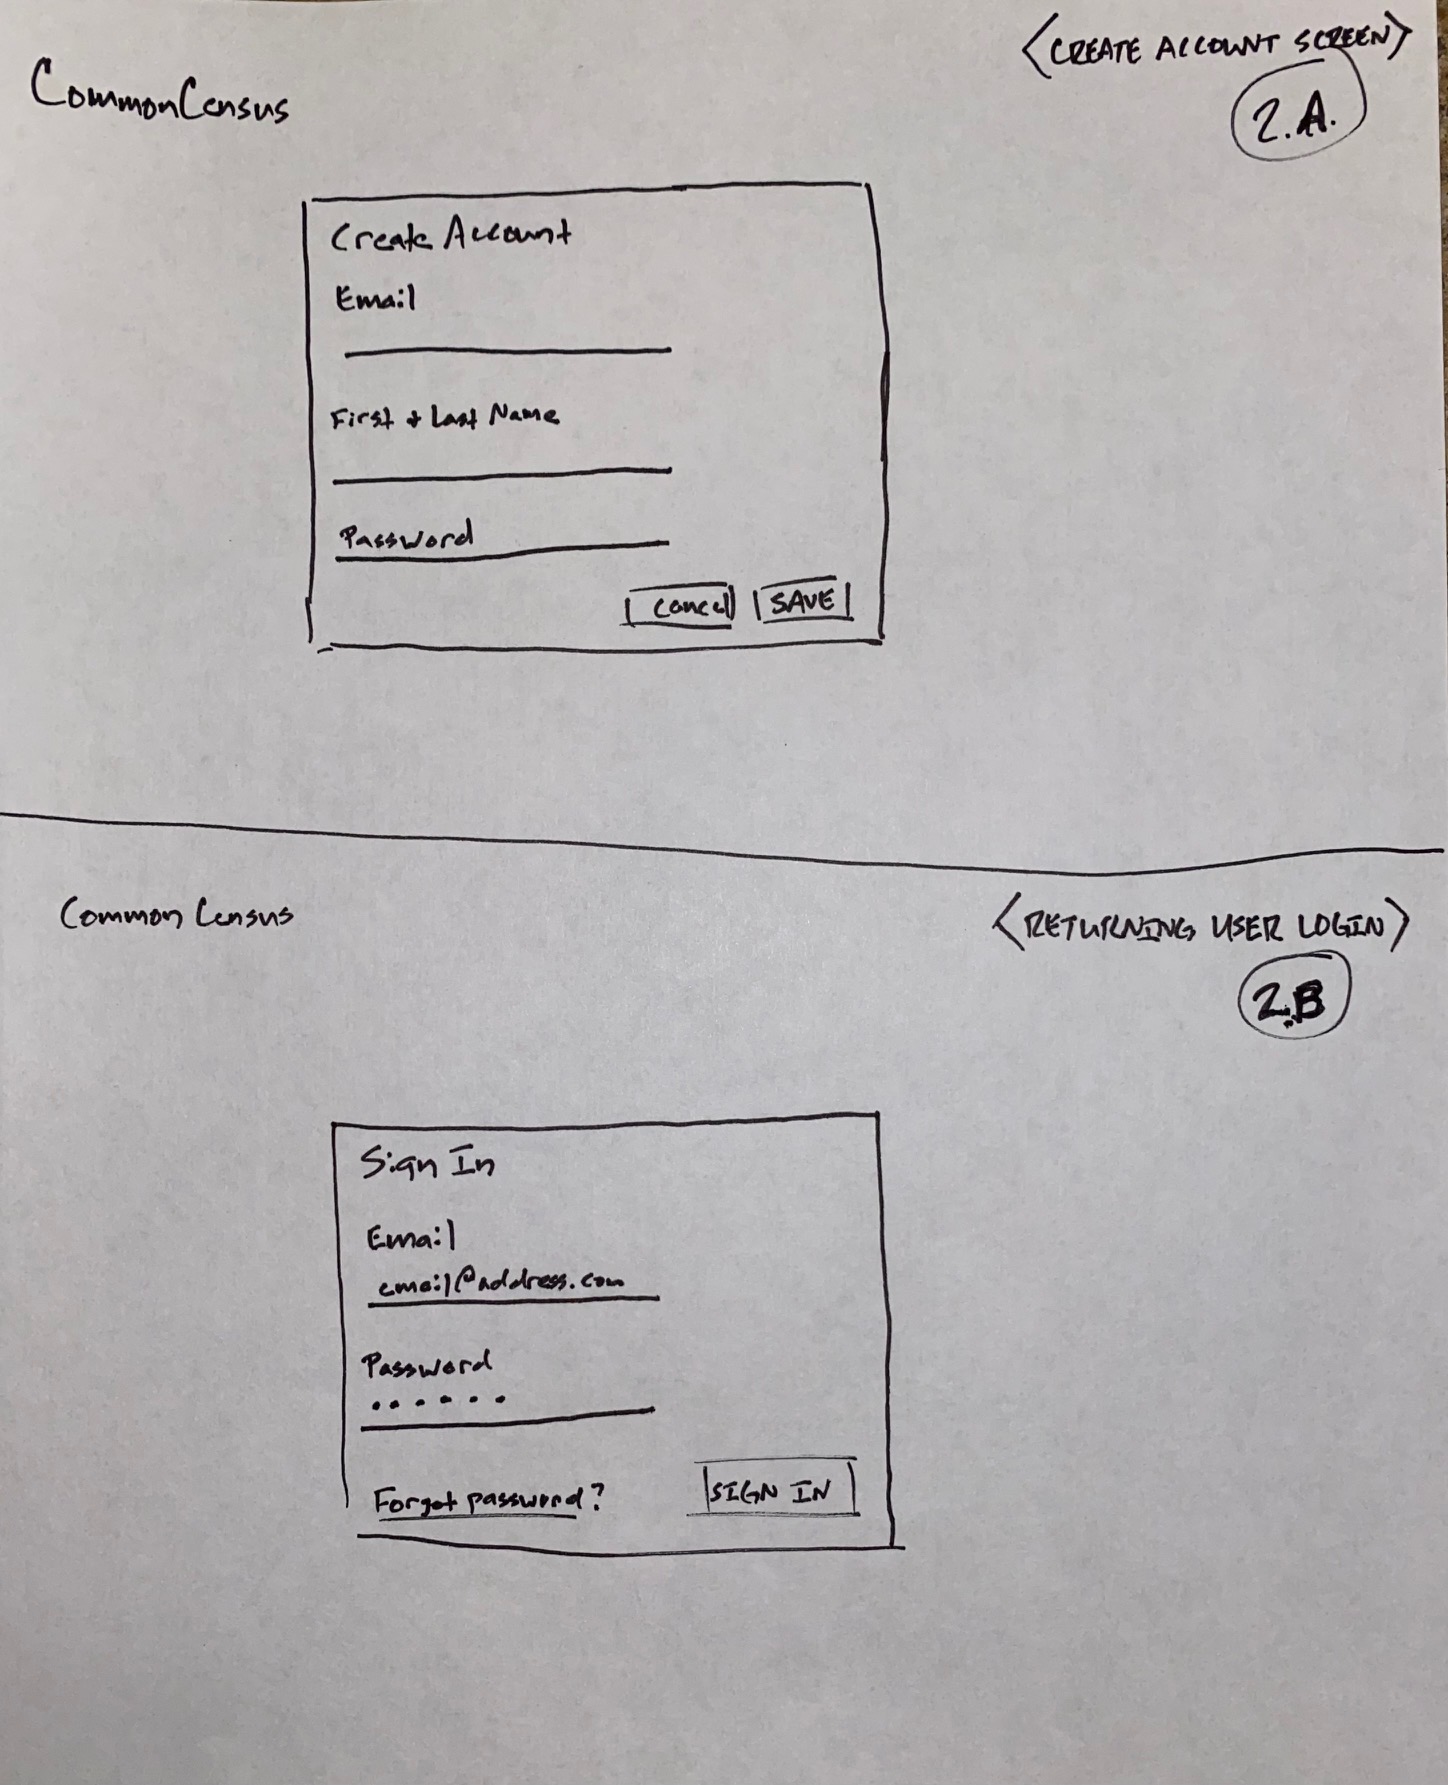 <CREATE ACCOUNT SCREEN>
CommonCensus
2.A.
Create Account
Email
First + Last Name
Password
Cancel SAVE
Common Census
<RETURNING USER LOGIN>
2.B
Sign In
Email
email@address.com
Password
......
Forgot password? SIGN IN